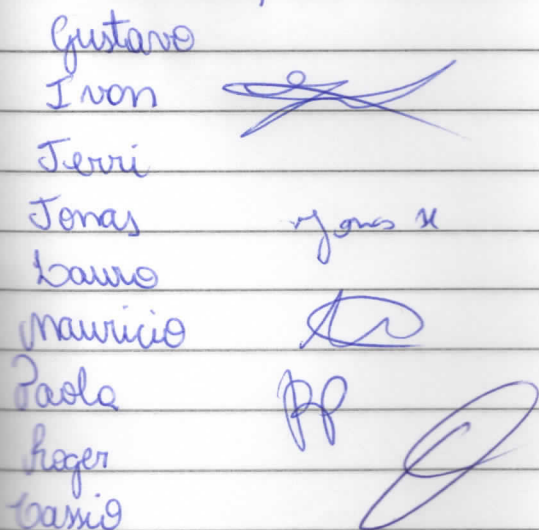 Gustavo
Ivon
Jerri
Jonas Jonas
Lauro
Mauricio
Paola
Roger
Cassio